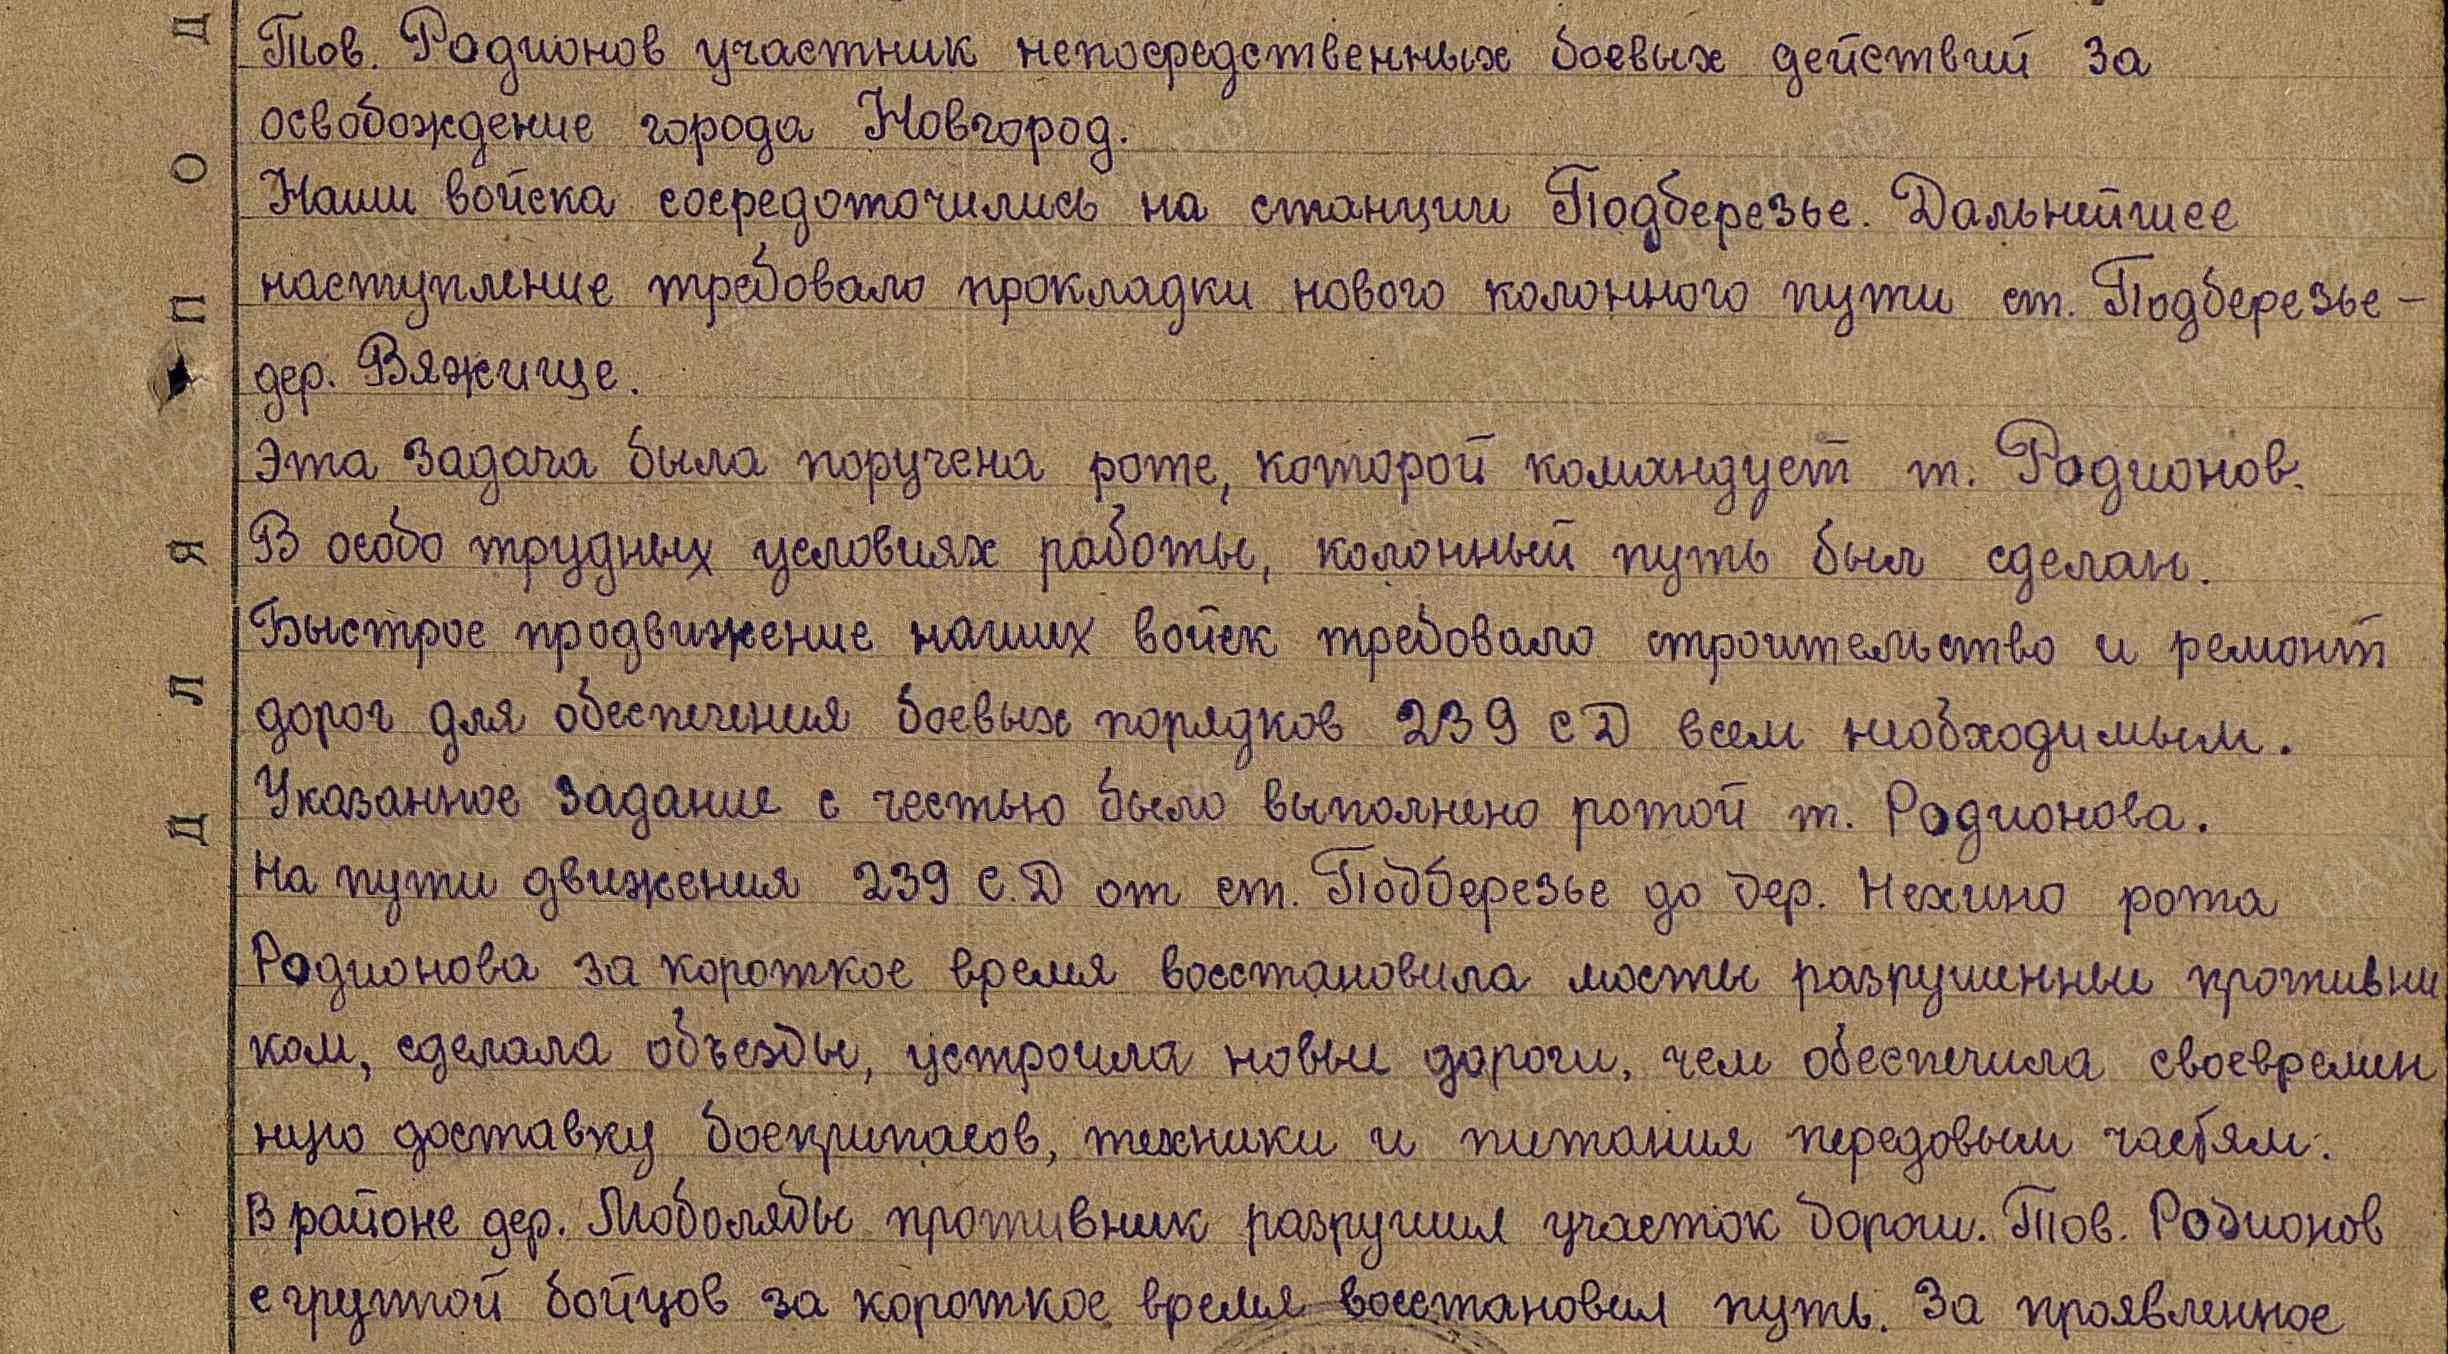 Тов. Родионов участник непосредственных боевых действий за
освобождение города Новгород.
Наши войска сосредоточились на станции Подберезье. Дальнейшее
наступление требовало прокладки нового колонного пути ст. Подберезье –
дер. Вяжище.
Эта задача была поручена роте, которой командует т. Родионов.
В особо трудных условиях работы, колонный путь был сделан.
Быстрое продвижение наших войск требовало строительство и ремонт
дорог для обеспечения боевых порядков 239 СД всем необходимым.
Указанное задание с честью было выполнено ротой т. Родионова.
На пути движения 239 С.Д от ст. Подберезье до дер. Нехино рота
Родионова за короткое время восстановила мосты разрушенные противни
ком, сделала объезды, устроила новые дороги, чем обеспечила своевремен
ную доставку боеприпасов, техники и питания передовым частям.
В районе дер. противник разрушил участок дороги. Тов. Родионов
с группой бойцов за короткое время восстановил путь. За проявленное
Д Л Я П О Д